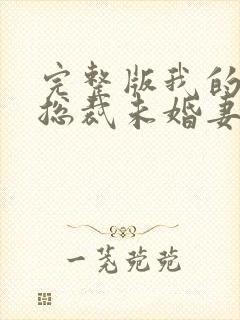 完整版我的
总裁未婚妻
一莞菀菀